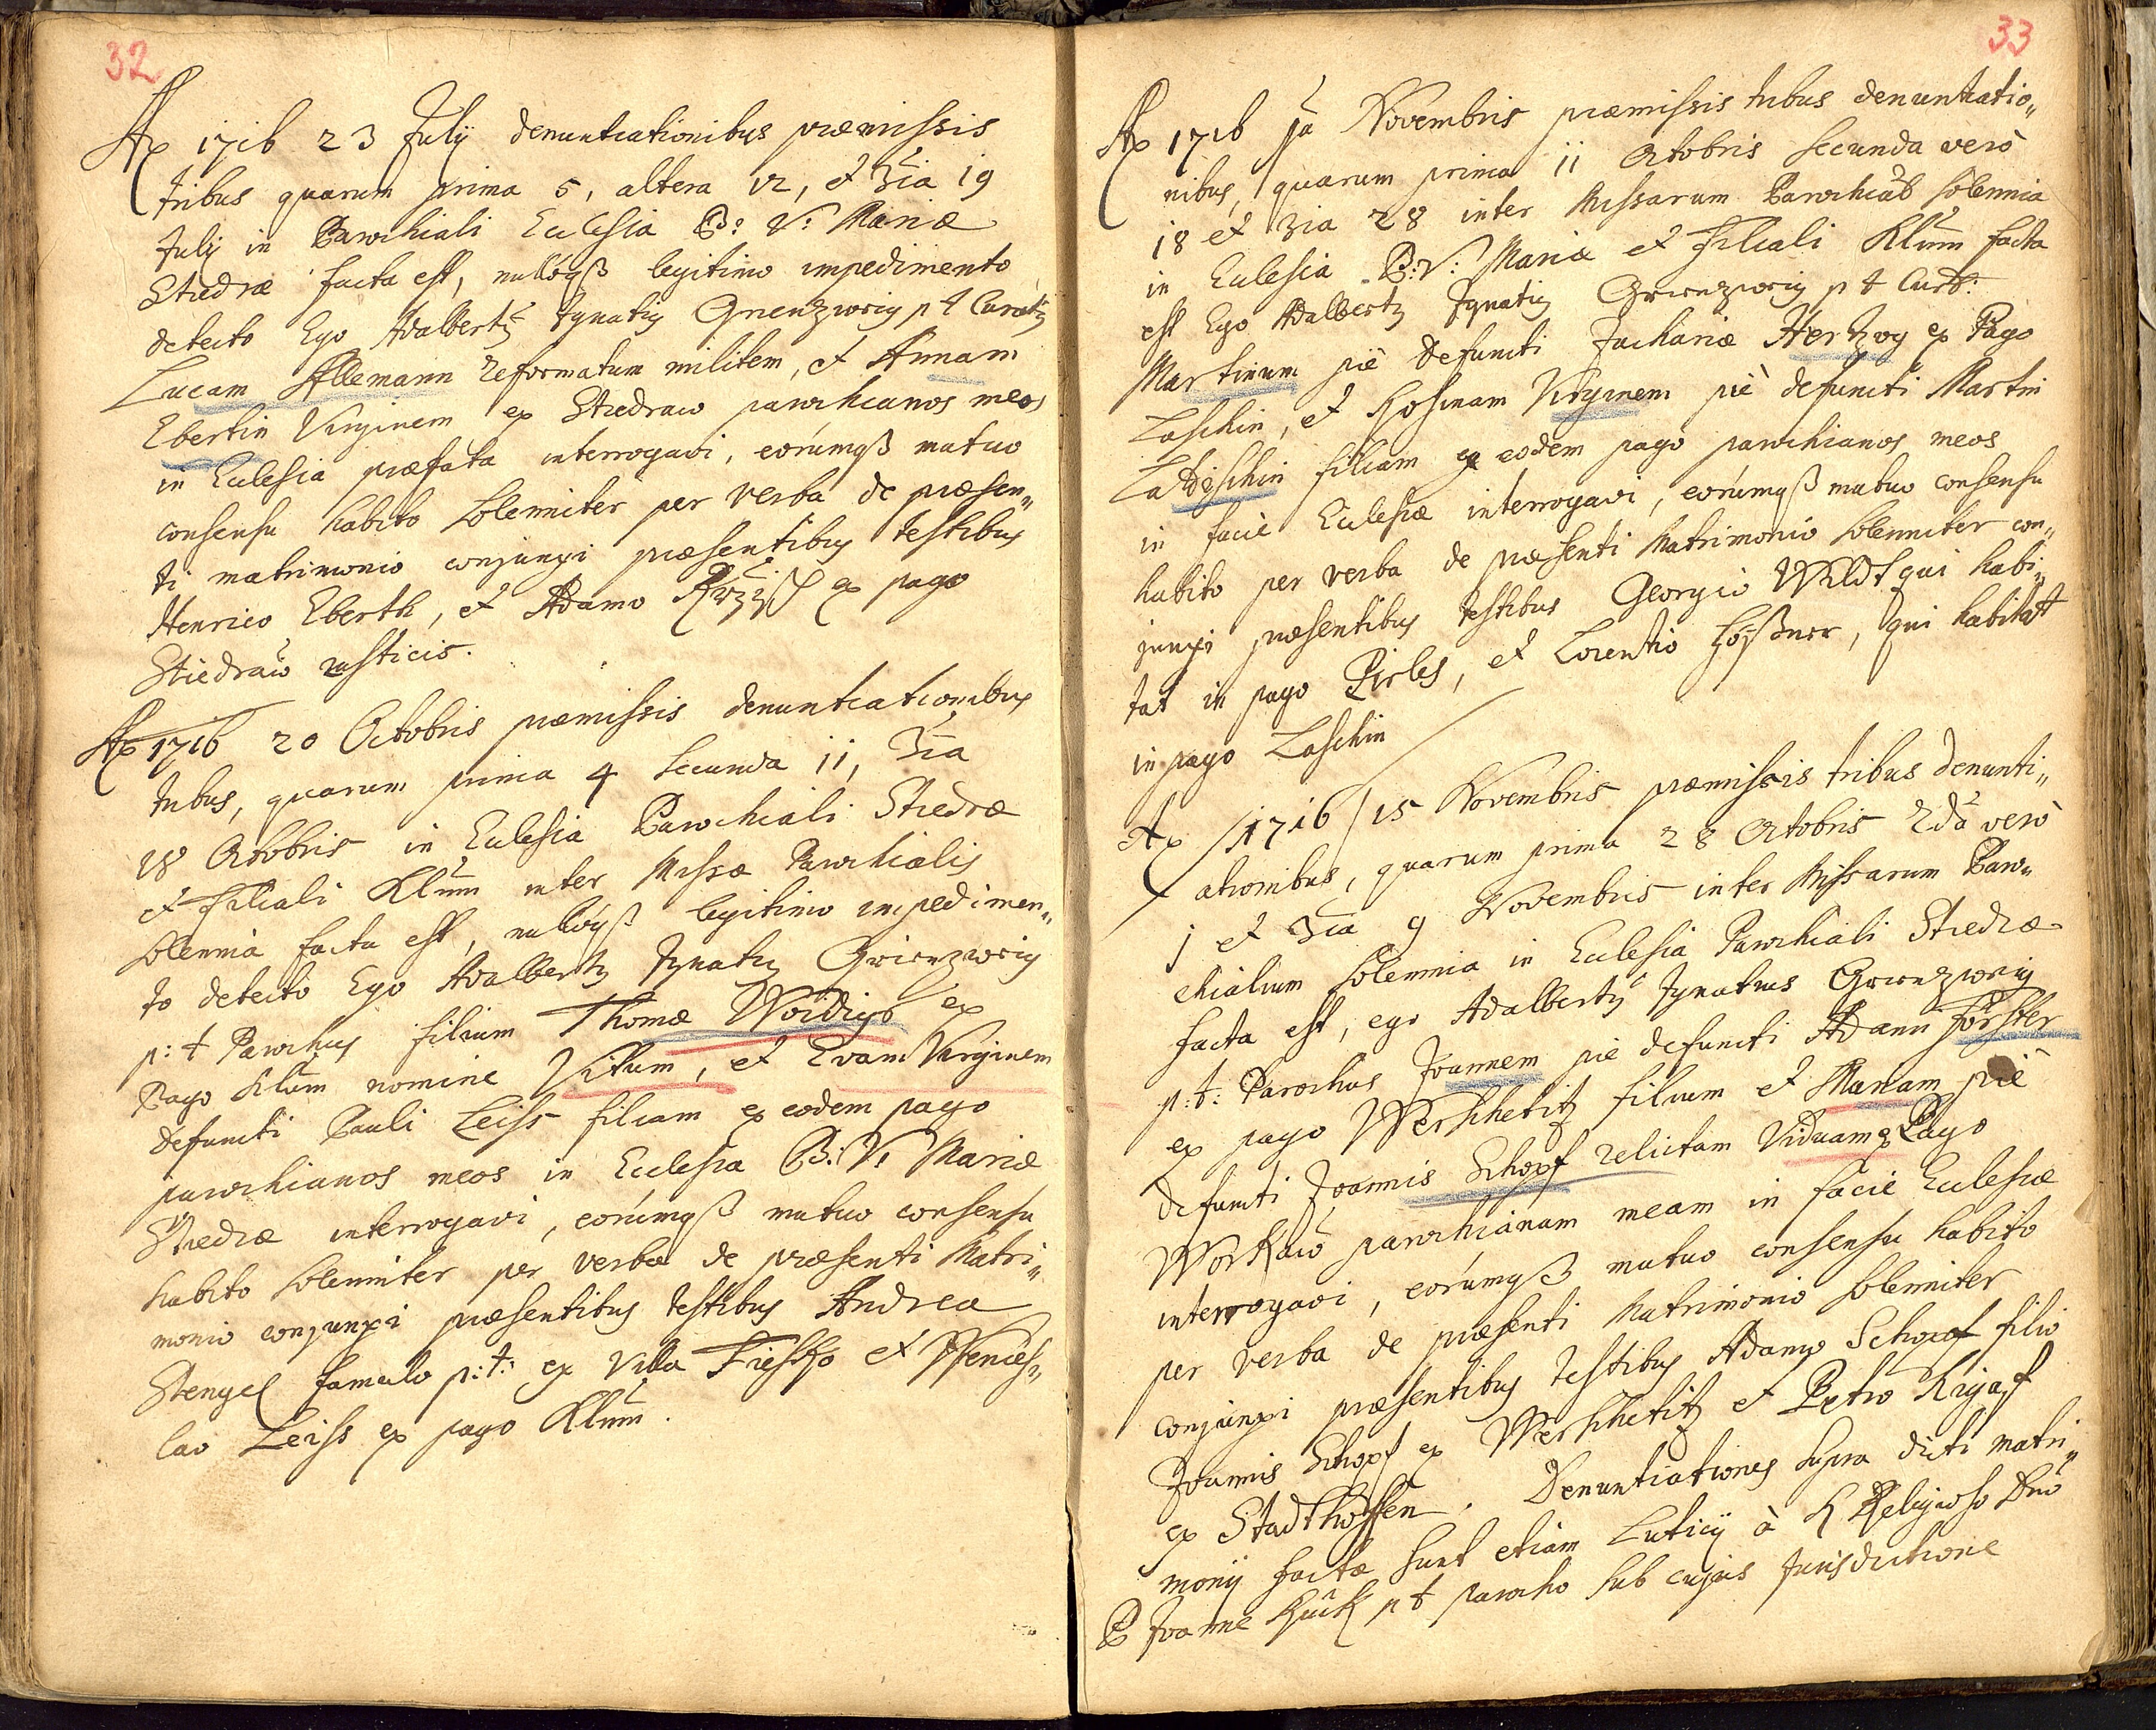 32
Ao 1716 23 July denuntiationibus præmissis
tribus quarum prima 5, altera 12, et 3ia 19
July in Parochiali Ecclesia B: V: Mariæ
Stiedræ facta est, nullóqß legitimo impedimento
detecto Ego Adalberty Ignatiy Grienzweig p t Curaty
Lucam Allemann reformatum militem, et Annam
Ebertin Virginem ex Stiedraw parochianos meos
in Ecclesia præfata interrogavi, eorúmqß mutuo
consensu habito solemniter per verba de præsen„
ti matrimonio conjunxi præsentibus testibus
Henrico Eberth, et Adamo ex pago
Stiedraw rusticis.
Ao 1716 20 Octobris præmissis denuntiationibus
tribus, quarum prima 4 secunda 11, 3ia
18 Octobris in Ecclesia Parochiali Stiedræ
et Filiali Klum inter Missæ Parochialis
solemnia facta est, nullóqß legitimo impedimen„
to detecto Ego Adalberty Ignatiy Grienzweig
p: t Parochus filium Thomæ Woidigo ex
Pago Klum nomine Vitum, et Evam Virginem
defuncti Pauli Leiss filiam ex eodem pago
parochianos meos in Ecclesia B: V: Mariæ
Stiedræ interrogavi, eorúmqß mutuo consensu
habito solemniter per verba de præsenti Matri„
monio conjunxi præsentibus testibus Andrea
Stengel famulo p: t: ex Villa Tiessko et Wences„
lao Leiss ex pago Klum.
33
Ao 1716 ja Novembris præmissis tribus denuntiatio„
nibus, quarum prima 11 Octobris secunda verò
18 et 3ia 28 inter Missarum Parochiab solemnia
in Ecclesia B: V: Mariæ et Filiali Klum facta
est Ego Adalberty Ignatiy Grienzweig p t Curat:
Martinum piè defuncti Zachariæ Hertzog ex Pago
Laschin, et Rosinam Virginem piè defuncti Martin
Ladeschin filiam ex eodem pago parochianos meos
in facie Ecclesiæ interrogavi, eorúmqß mutuo consensu
habito per verba de præsenti Matrimonio solemniter con„
junxi præsentibus testibus Georgio Wildt qui habi„
tat in pago Pirles, et Lorentio, qui habitat
in pago Laschin
Ao 1716 15 Novembris præmissis tribus denunti„
ationibus, quarum prima 28 Octobris 2da verò
1 et 3ia 9 Novembris inter Missarum Paro„
chialium solemnia in Ecclesia Parochiali Stiedræ
facta est, ego Adalberty Ignatius Grienzweig
p: t: Parochus Joannem pie defuncti Adami Förster
ex pago Werschetitz filium et Mariam piè
defuncti Joannis Schopf relictam Viduam ex Pago
Workaw parochianam meam in facie Ecclesiæ
interrogavi, eorúmqß mutuo consensu habito
per verba de præsenti Matrimonio solemniter
conjunxi præsentibus testibus Adamo Schopf filio
Joannis Schopf ex Werschetitz et Petro
ex Stadthoffen. Denuntiationes supra dicti matri„
monij factæ sunt etiam Luticij à R Religioso Dno
P Joanne p t parocho sub cujus Jurisdictione